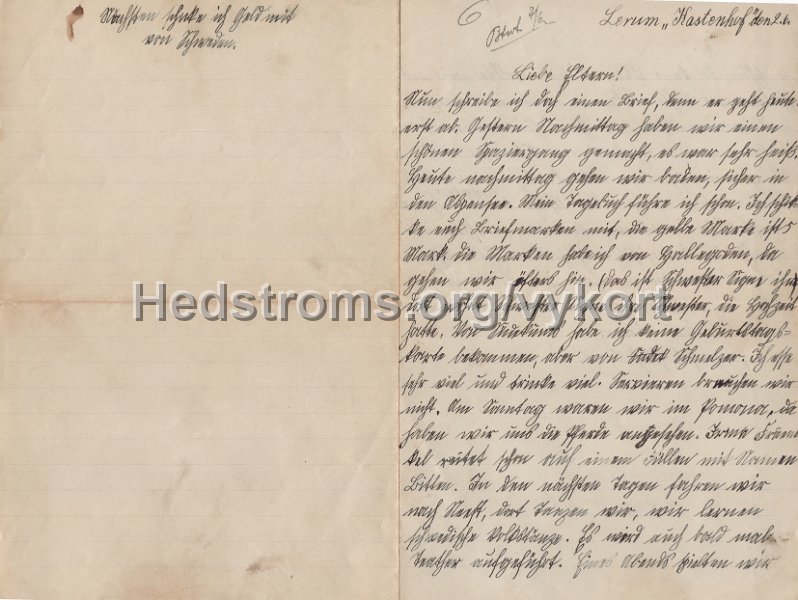 Nächsten schicke ich Geld mit
von Schweden.
6
Lerum „Kastenhof" den 2.6.
Liebe Eltern!
Nun schreibe ich doch einen Brief, denn er geht heute
erst ab. Gestern Nachmittag haben wir einen
schönen Spaziergang gemacht, es war sehr heiß.
Heute nachmittag gehen wir baden, sicher in
den Mein Tagebuch führe ich schon. Ich schik-
ke euch Briefmarken mit, die gelbe Marke ist 5
Mark. die Marken habe ich von da
gehen wir öfters hin. (das ist Schwester Signe ihr
Hedstroms.org/vykort
Schwester, die Hochzeit
hatte. Von habe ich keine Geburtstags-
karte bekommen, aber von Schmelzer. Ich esse
sehr viel und trinke viel. Servieren brauchen wir
nicht. Am Sonntag waren wir im Pomona, da
haben wir uns die Pferde angesehen. Irma Frän-
kel reitet schon auf einem Füllen mit Namen
In den nächsten Tagen fahren wir
nach dort tanzen wir, wir lernen
schwedische Volkstänze. Es wird auch bald mal
Teather aufgeführt. Eines Abends spielten wir